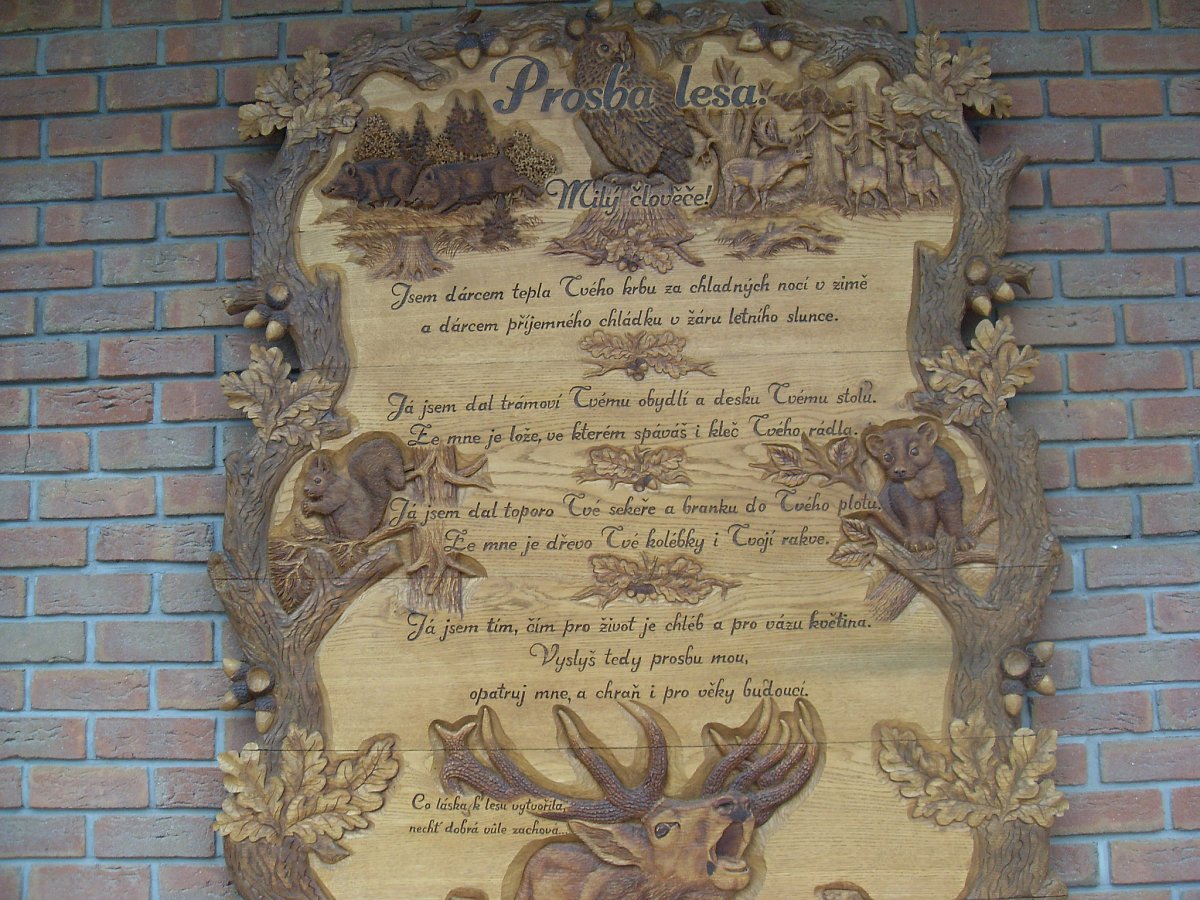 Prosba lesa.
Milý člověče!
Jsem dárcem tepla Tvého krbu za chladných nocí v zimě
a dárcem příjemného chládku v žáru letního slunce.
Já jsem dal trámoví Tvému obydlí a desku Tvému stolu.
Ze mne je lože, ve kterém spáváš i kleč Tvého rádla.
Já jsem dal toporo Tvé sekeře a branku do Tvého plotu.
Ze mne je dřevo Tvé kolébky i Tvojí rakve.
Já jsem tím, čím pro život je chléb a pro vázu květina.
Vyslyš tedy prosbu mou,
opatruj mne, a chraň i pro věky budoucí.
Co láska k lesu vytvořila,
nechť dobrá vůle zachova...